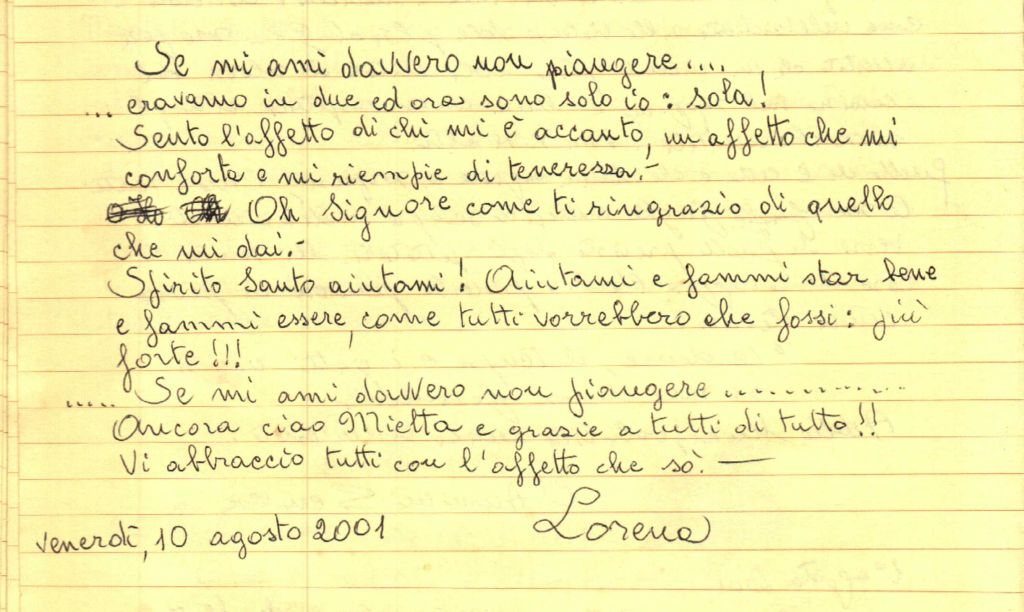 Se mi ami davvero non piangere....
... eravamo in due ed ora sono solo io: sola!
Sento l'affetto di chi mi è accanto, un affetto che mi
conforta e mi riempie di tenerezza.-
Oh Signore come ti ringrazio di quello
che mi dai.-
Spirito Santo aiutami! Aiutami e fammi star bene
e fammi essere, come tutti vorrebbero che fossi: più
forte!!!
..... Se mi ami davvero non piangere .............
Ancora ciao Mietta e grazie a tutti di tutto!!
Vi abbraccio tutti con l'affetto che sò. —
venerdì, 10 agosto 2001 Lorena